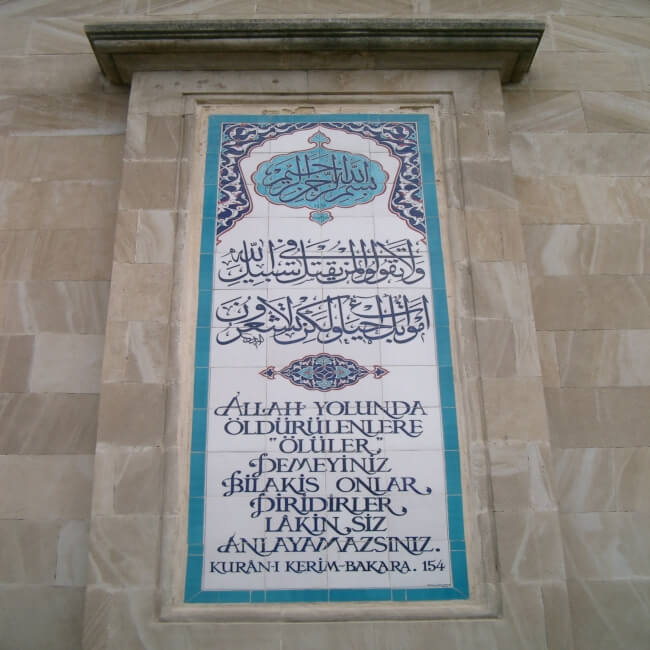 بسم الله الرحمن الرحيم
ولا تقولوا لمن يقتل في سبيل الله
اموات بل احياء ولكن لا تشعرون
ALLAH YOLUNDA
ÖLDÜRÜLENLERE
"ÖLÜLER"
DEMEYİNİZ
BİLAKİS ONLAR
DİRİDİRLER
LÂKİN SİZ
ANLAYAMAZSINIZ.
KURÂN-I KERİM-BAKARA. 154